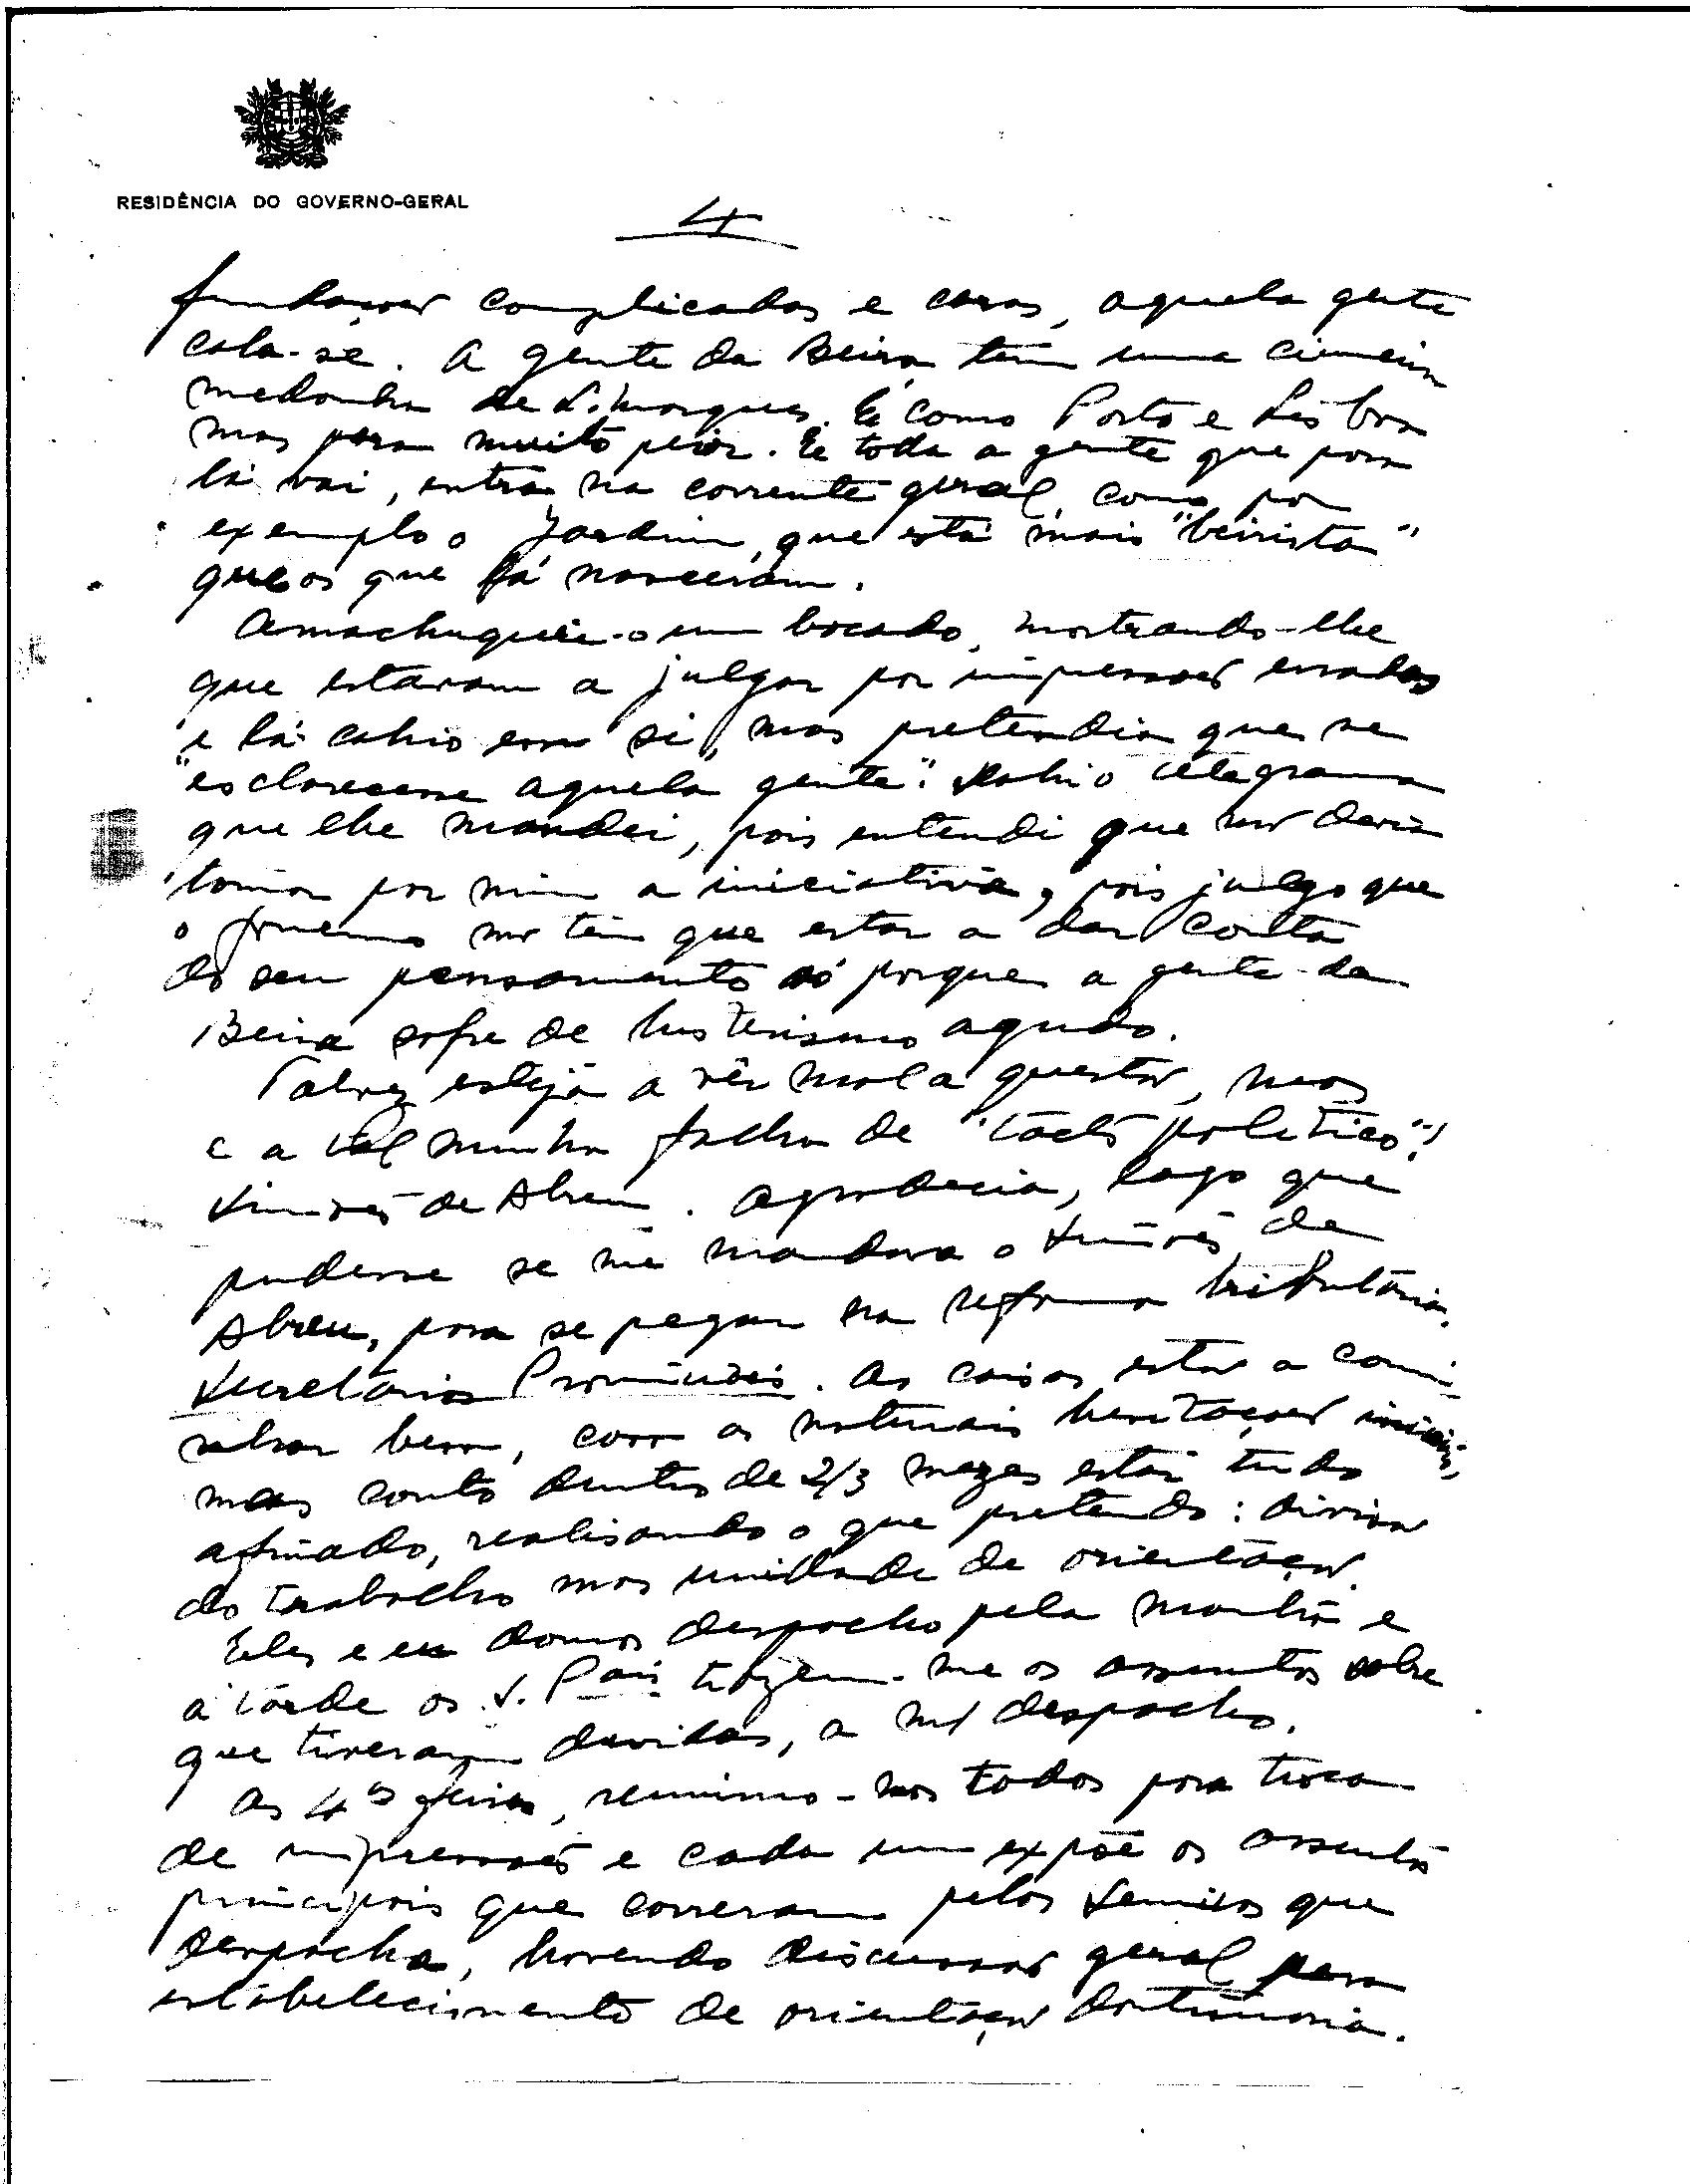 RESIDÊNCIA DO GOVERNO-GERAL
4
fundações complicadas e caras, aquela gente
cala-se. A gente da Beira tem uma ciumeira
medonha de L. Marques. É como Porto e Lisboa
mas para muito peior. E toda a gente que para
lá vai, entra na corrente geral, como por
exemplo o Jardim, que está mais "beirista"
que os que lá nasceram.
Amachuquei-o um bocado, mostrando-lhe
que estavam a julgar por impressões erradas
e lá cahio em si, mas pretendia que se
"esclarecesse aquela gente". Dahi o telegrama
que lhe mandei, pois entendi que não devia
tomar por mim a iniciativa, pois julgo que
o Governo não tem que estar a dar conta
do seu pensamento só porque a gente da
Beira sofre de histerismo agudo.
Talvez esteja a vêr mal a questão, mas
é a tal minha falha de "tacto politico"!
Simões de Abreu. Agradecia, logo que
pudesse se me mandava o Simões de
Abreu, para se pegar na reforma tributária.
Secretários Provinciais. As coisas estão a cami-
nhar bem, com as naturais hesitações iniciais,
mas conto dentro de 2/3 mezes estár tudo
afinado, realisando o que pretendo: divisão
do trabalho mas unidade de orientação.
Eles e eu damos despacho pela manhã e
á tarde os S. Pais trazem-me os assuntos sobre
que tiveram duvidas, a m/ despacho.
As 4as feiras, reunimo-nos todos para troca
de impressões e cada um expõe os assuntos
principais que correram pelos Serviços que
despacha, havendo discussão geral para
estabelecimento de orientação doutrinaria.